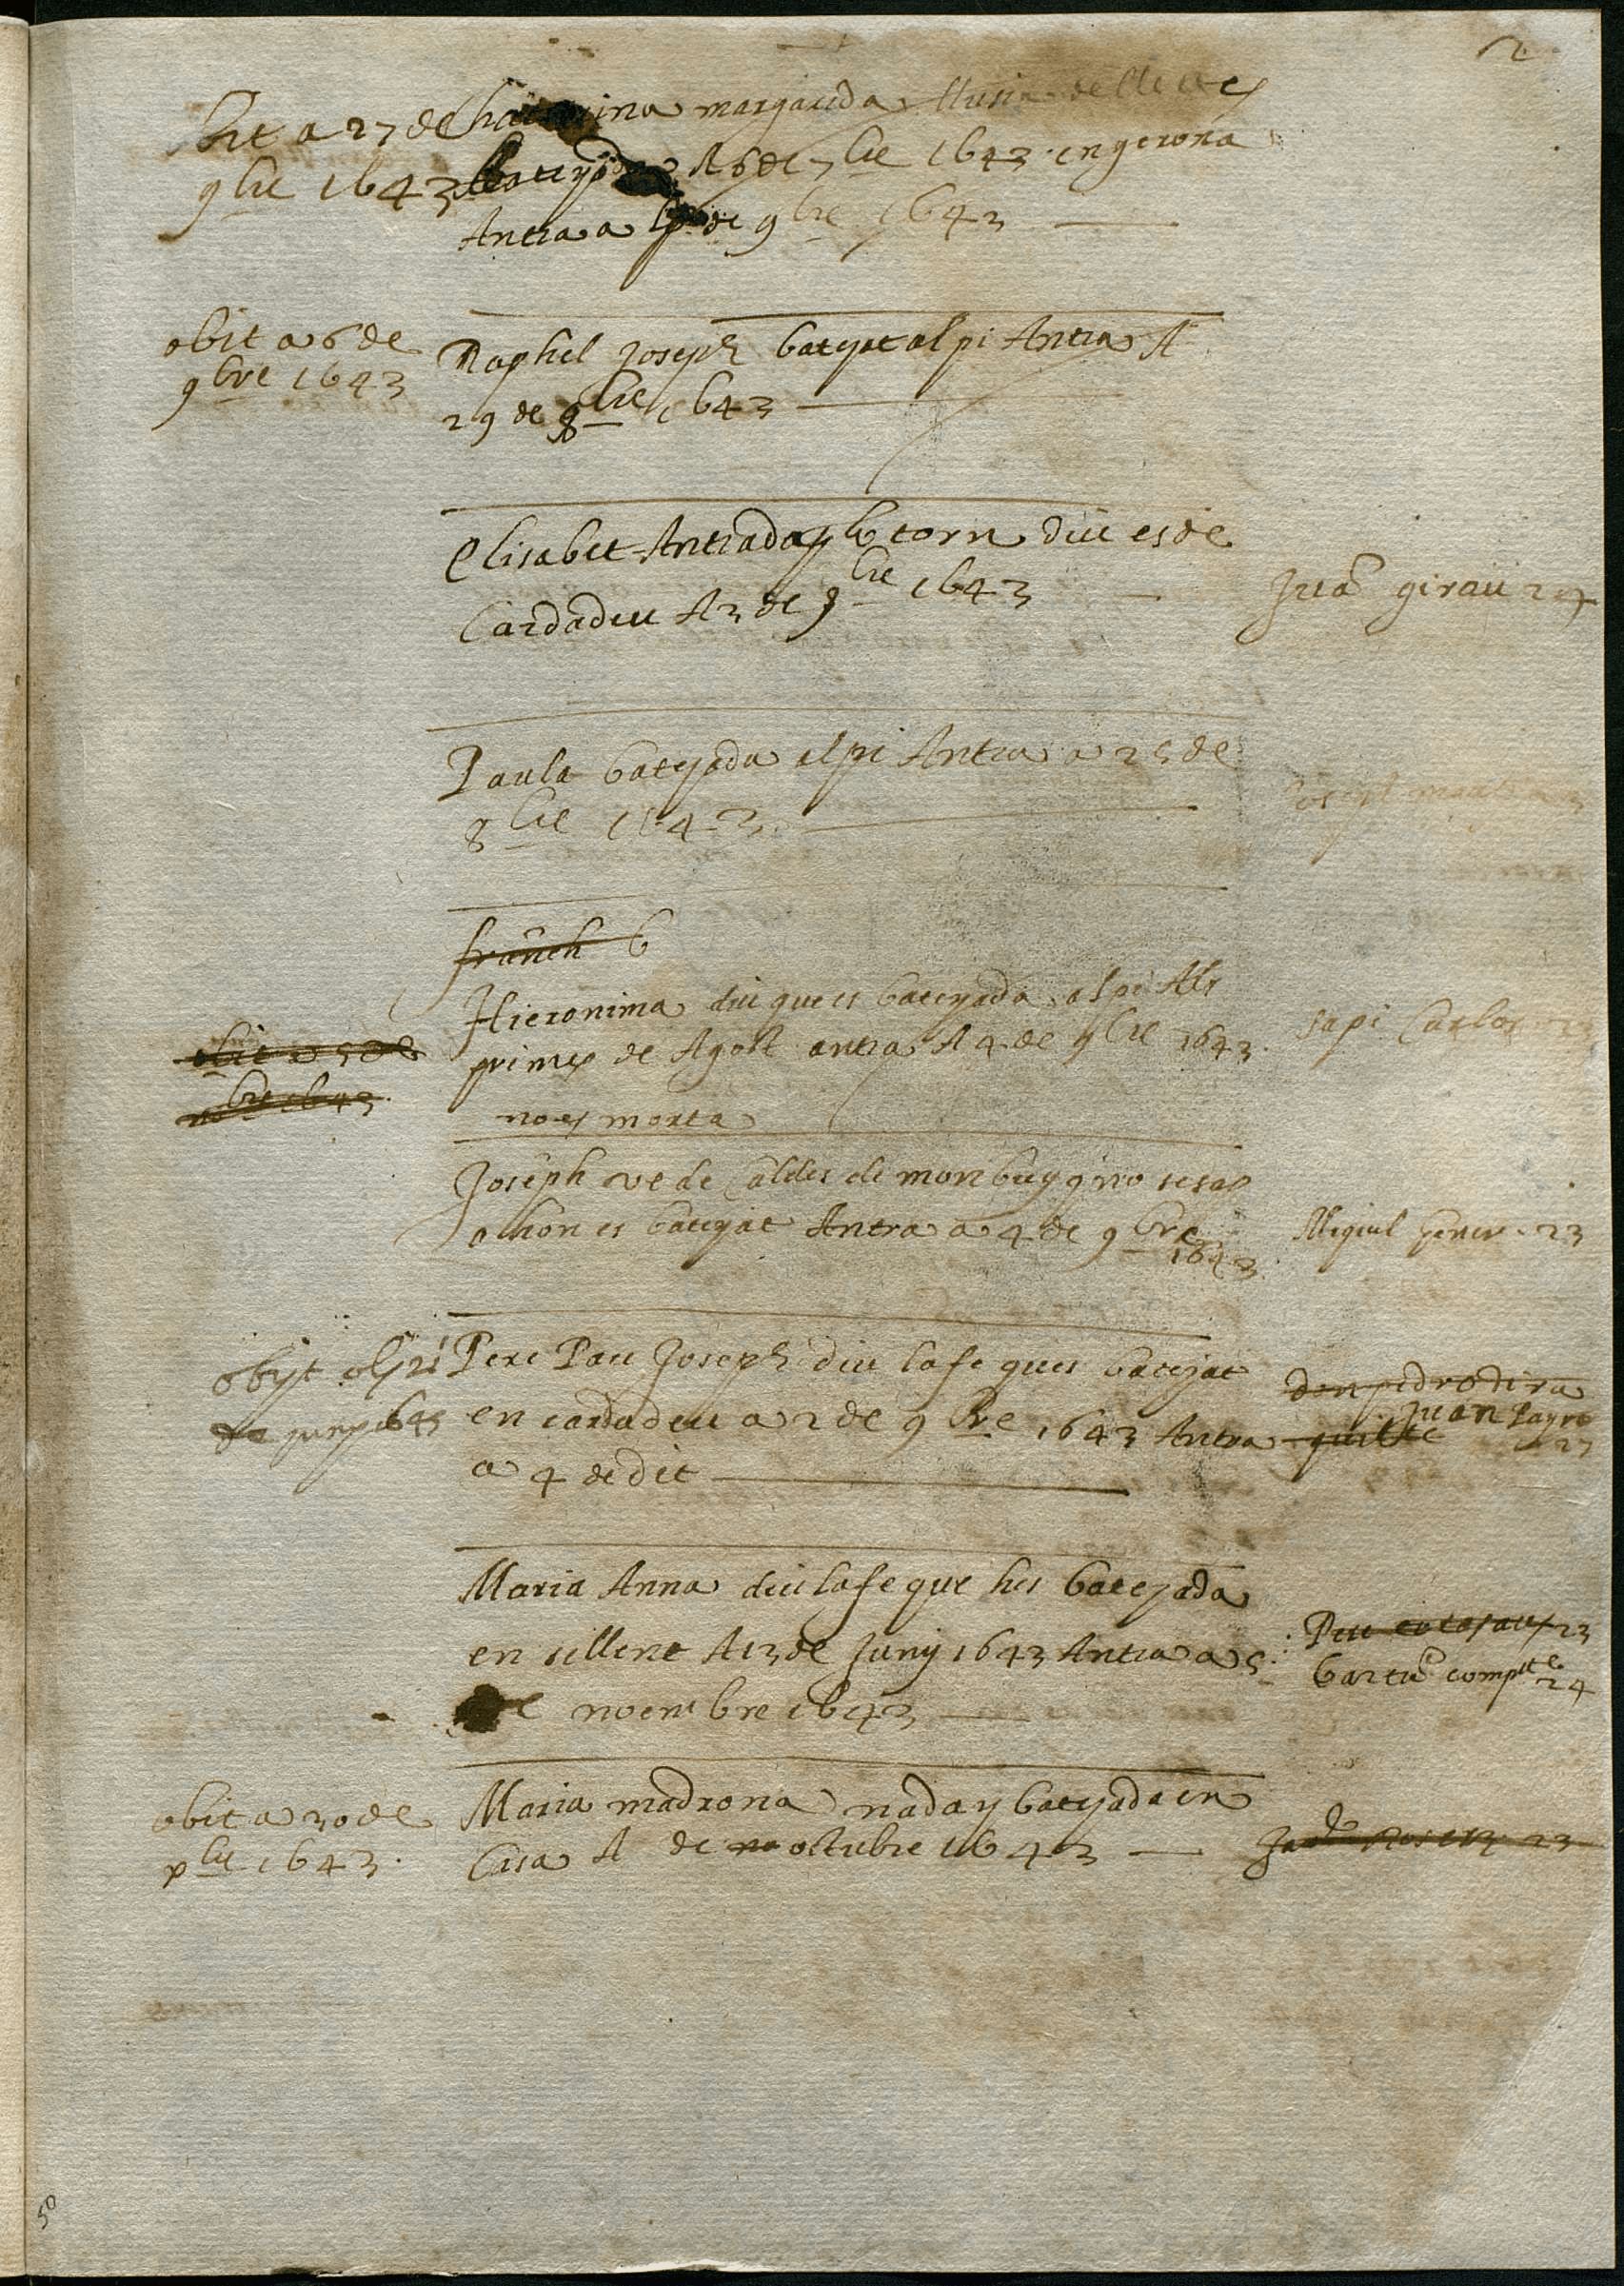 2
obit a 27 de
9bre 1643
Chaterina margarida Llusia de lletres
batejada A 6 de 7bre 1643 en gerona
Antra a p de 9bre 1643
obit a 6 de
9bre 1643
Raphel Joseph batejat al pi Antra A
29 de 8bre 1643
Elisabet Antrada p lo torn diu es de
Cardadeu A 3 de 9bre 1643
Jua girau 24
Paula batejada al pi Antra a 25 de
8bre 1643
Joseph
franch b
Hieronima diu que es batejada al pi Als
primer de Agost antra A 4 de 9bre 1643
no es morta
obit a 5 de
nobre 1643
Sapi Carlos 23
Joseph ve de Caldes de monbuy q no se sap
ahon es batejat Antra a 4 de 9bre
1643
Miquel Janer 23
obijt als 21
de juny 1645
Pere Pau Joseph diu la fe ques batejat
en cardadeu a 2 de 9bre 1643 Antra
a 4 de dit
don pedro di ra
juan Payro
23
Maria Anna diu la fe que hes batejada
en sellent A 13 de Juny 1643 Antra a 5
de noembre 1643
Pere 23
bartu compte 24
obit a 30 de
xbre 1643
Maria madrona nada y batejada en
Casa A de no octubre 1643
23
50